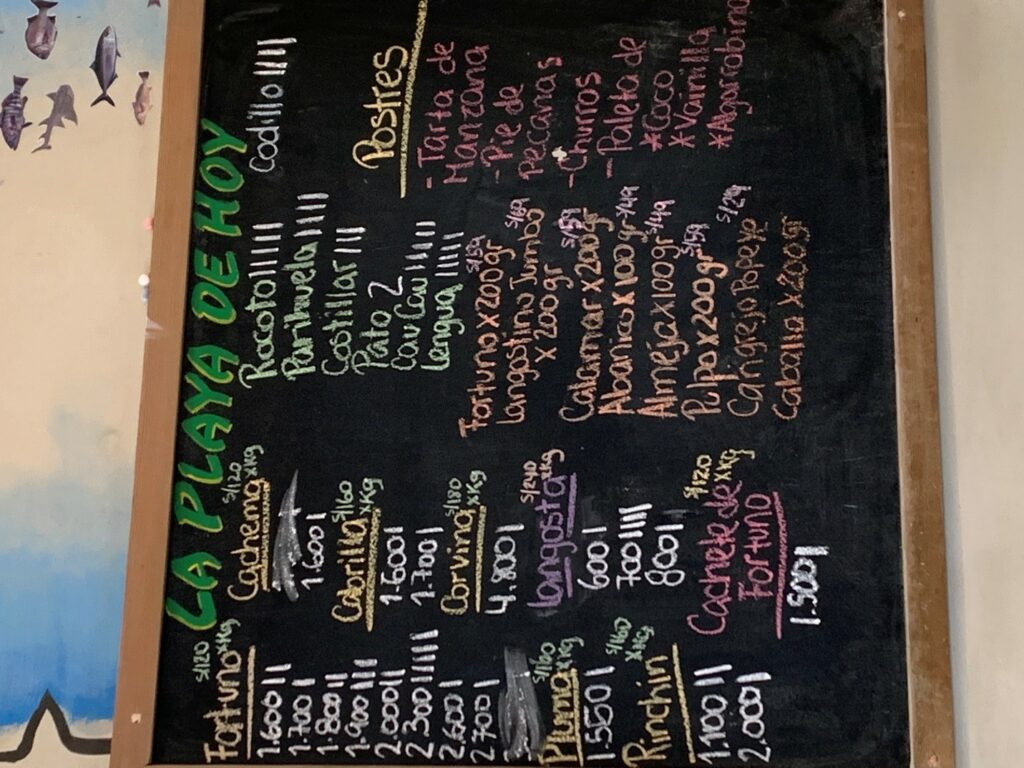 LA PLAYA DE HOY
Fortuno S/120 xKg
1.600 ||
1.700 |
1.800 ||
1.900 |||
2.000 ||
2.300 |||||
2.600 |
2.700 |
Pluma S/160 xKg
1.550 |
Rinchin S/160 xKg
1.100 ||
2.000 |
Cachema S/120 xKg
1.600 |
Cabrilla S/160 xKg
1.600 |
1.700 |
Corvina S/180 xKg
4.800 |
Langosta S/240 xKg
600 |
700 ||||
800 |
Cachete de S/120 xKg
Fortuno
1.500 |
Rocoto |||||
Parihuela ||||
Costillar |||
Pato 2
Cau Cau |||||
Lengua ||||
Fortuno x 200gr S/59
Langostino Jumbo S/69
x 200 gr
Calamar x 200gr S/59
Abanico x 100gr S/49
Almeja x 100gr S/49
Pulpo x 200gr S/59
Cangrejo Popeyo S/29
Caballa x 200gr
Codillo ||||
Postres
- Tarta de
Manzana
- Pie de
Pecanas
- Churros
- Paleta de
* Coco
* Vainilla
* Algarrobina